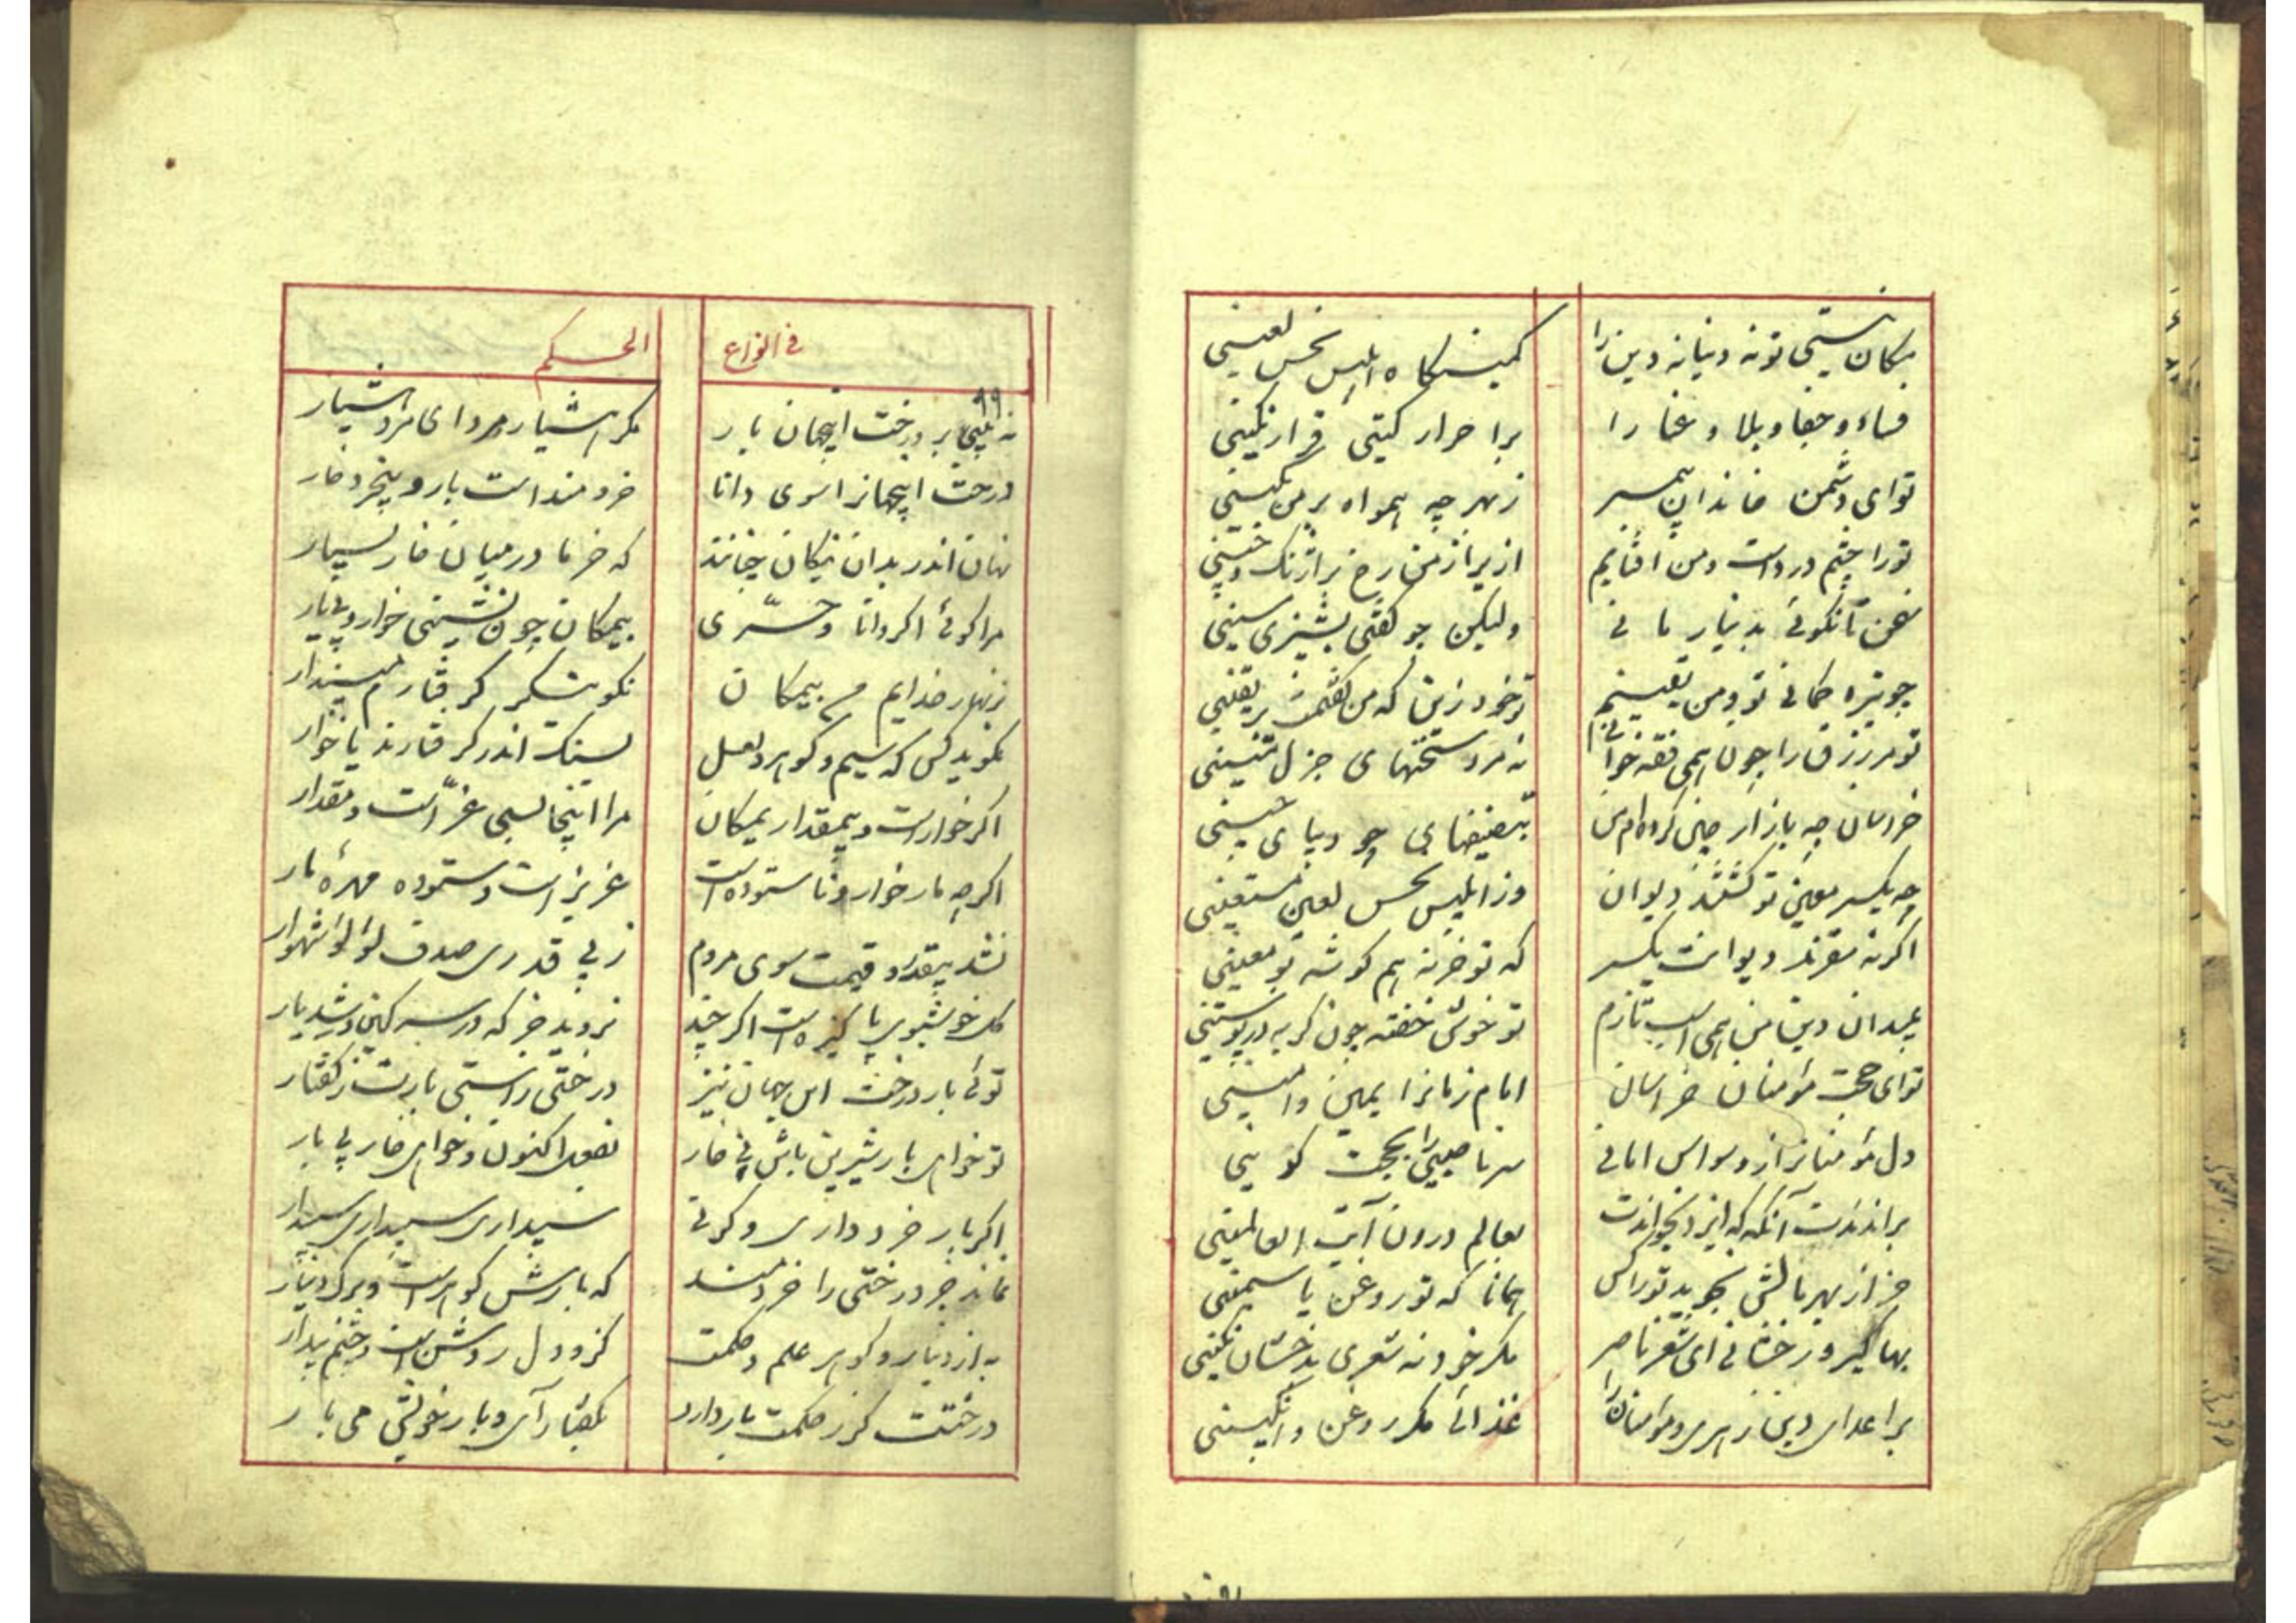 مکان نیستی تو نه دنیا نه دین را
کمینگاه ابلیس نحس لعینی
فساد و جفا و بلا و عنا را
بر احرار گیتی قراری مکینی
تو ای دشمن خاندان پیمبر
ز بهر چه همواه بر من بکینی
تو را چشم درد است و من آفتابم
ازیرا ز من رخ پر آژنگ و چینی
سخن تا نگوئی بدینار مانی
ولیکن چو گفتی پشیزی مسینی
چو تیره گمانی تو و من یقینم
تو خود زین که من گفتمت بر یقینی
تو مر زرق را چون همی فقه خوانی
نه مرد سخنهای جزل متینی
خراسان چو بازار چین کرده‌ام من
بتصنیفهای چو دیبای چینی
چه یکسر معین تو گشتند دیوان
وز ابلیس نحس لعین مستعینی
اگر نه مقرند دیوانت یکسر
که تو خر نه هم گوشه بو معینی
بمیدان دین من همی اسب تازم
تو خوش خفته چون گربه در پوستینی
تو ای حجت مؤمنان خراسان
امام زمانرا یمین و امینی
دل مؤمنانرا ز وسواس امانی
سر ناصبی را بحجت کدینی
براندندت آنگه که ایزد بخواندت
بعالم درون آیت العالمینی
جز از بهر مالش نجوید تو را کس
همانا که تو روغن یاسمینی
بهاگیر و رخشانی ای شعر ناصر
مگر خود نه شعری بدخشان نگینی
بر اعدای دین زهری و مؤمنان را
غذائی مگر روغن و انگبینی
فی انواع
الحکم
۹۹
نه بینی بر درخت اینجهان بار
مگر هشیار مرد ای مرد هشیار
درخت اینجهانرا سوی دانا
خردمند است بار و بیخرد خار
نهان اندر بدان نیکان چنانند
که خرما در میان خار بسیار
مرا گوئی اگر دانا و حری
بیمکان چون نشینی خوار و بی یار
بزنهار خدایم من بیمکان
نکو بنگر گرفتارم مپندار
نگوید کس که سیم و گوهر و لعل
بسنگ اندر گرفتارند یا خوار
اگر خوار است و بیمقدار یمکان
مرا اینجا بسی عز است و مقدار
اگرچه مار خوار و ناستوده است
عزیز است و ستوده مهره مار
نشد بیقدر و قیمت سوی مردم
ز بی قدری صدف لؤلؤ شهوار
گل خوشبوی پاکیزه است اگر چند
نروید جز که در سرگین و شدیار
توئی بار درخت این جهان نیز
درختی راستی بارت ز گفتار
تو خواهی بار شیرین باش بی خار
بفعل اکنون و خواهی خار بی بار
اگر بار خرد داری و گرنی
سپیداری سپیداری سپیدار
نماند جز درختی را خردمند
که بارش گوهر است و برگ دینار
به از دینار و گوهر علم و حکمت
کزو دل روشن است و چشم بیدار
درختت گر ز حکمت بار دارد
بگفتار آی و بار خویش می بار